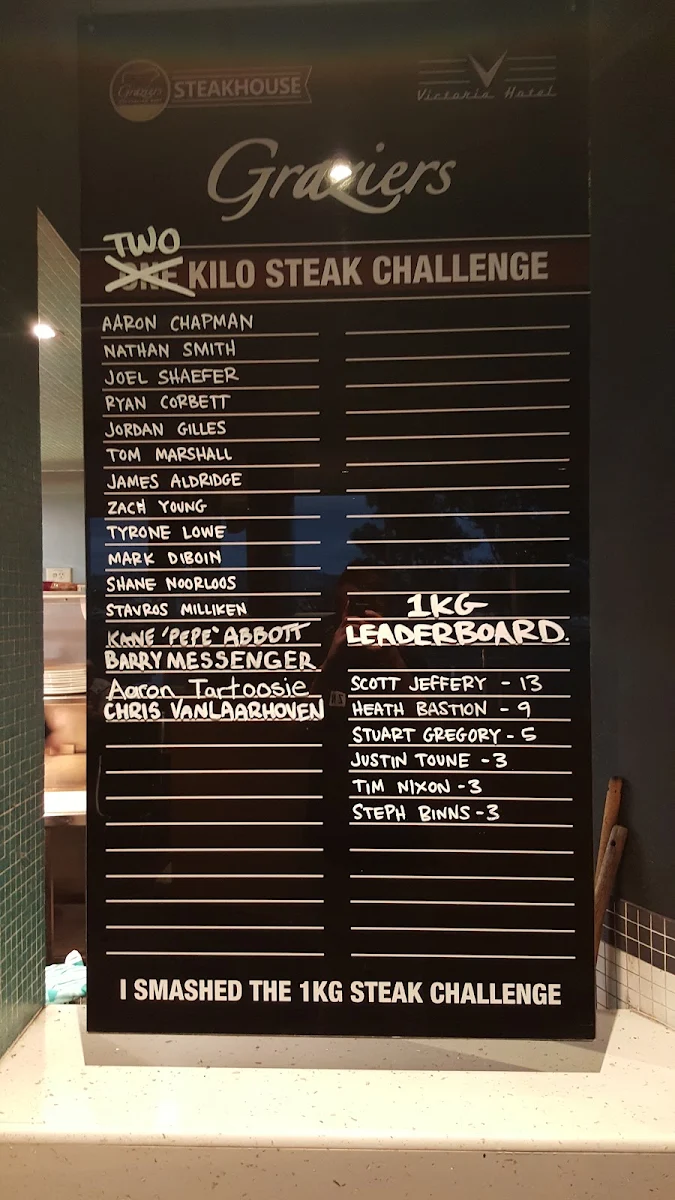 Graziers STEAKHOUSE
Victoria Hotel
Graziers
TWO
ONE KILO STEAK CHALLENGE
AARON CHAPMAN
NATHAN SMITH
JOEL SHAEFER
RYAN CORBETT
JORDAN GILLES
TOM MARSHALL
JAMES ALDRIDGE
ZACH YOUNG
TYRONE LOWE
MARK DIBOIN
SHANE NOORLOOS
STAVROS MILLIKEN
KANE 'PEPE' ABBOTT
BARRY MESSENGER
Aaron Tartoosie
CHRIS VANLAARHOVEN
1KG
LEADERBOARD.
SCOTT JEFFERY - 13
HEATH BASTION - 9
STUART GREGORY - 5
JUSTIN TOUNE - 3
TIM NIXON - 3
STEPH BINNS - 3
I SMASHED THE 1KG STEAK CHALLENGE